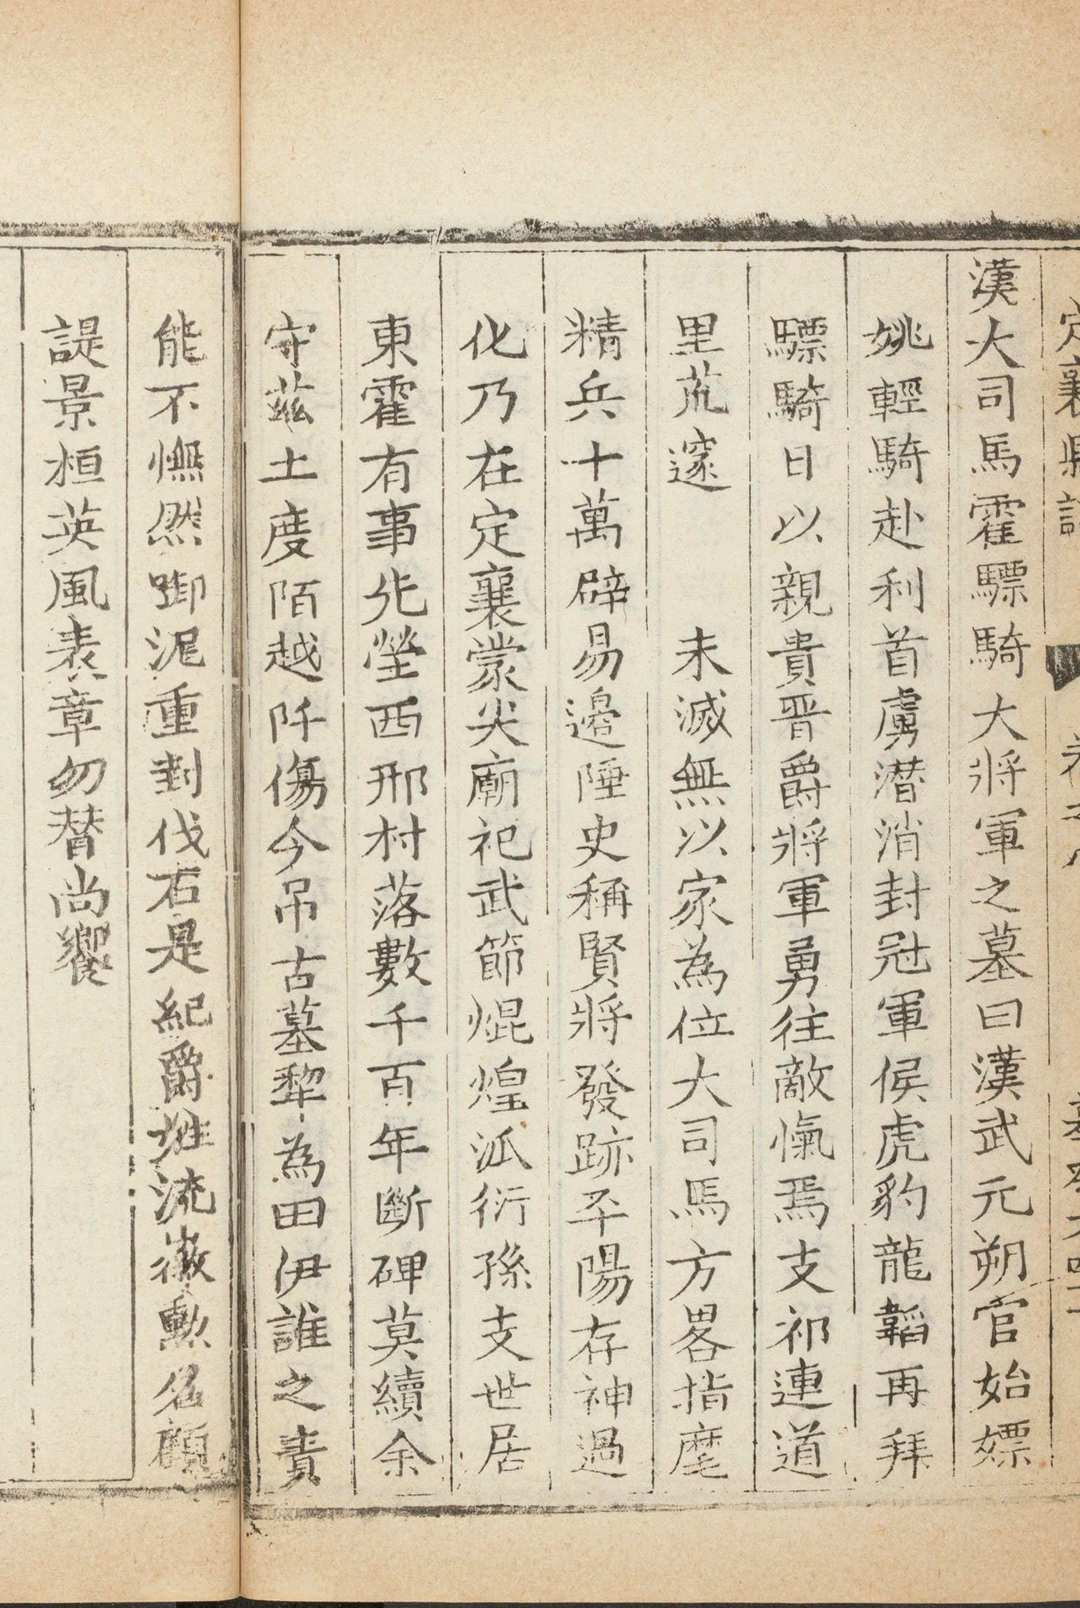 定襄縣志
漢大司馬霍驃騎大將軍之墓曰漢武元朔官始嫖
姚輕騎赴利首虜潛消封冠軍侯虎豹龍韜再拜
驃騎日以親貴晋爵將軍勇往敵愾焉支祁連道
里荒邃　　未滅無以家為位大司馬方畧指麾
精兵十萬辟易邉陲史稱賢將發跡平陽存神過
化乃在定襄蒙尖廟祀武節焜煌泒衍孫支世居
東霍有事先塋西邢村落數千百年斷碑莫續余
守茲土度陌越阡傷今吊古墓犂為田伊誰之責
能不憮然踟泥重封伐石是紀爵姓流徽勲名顧
諟景桓英風表章勿替尚饗